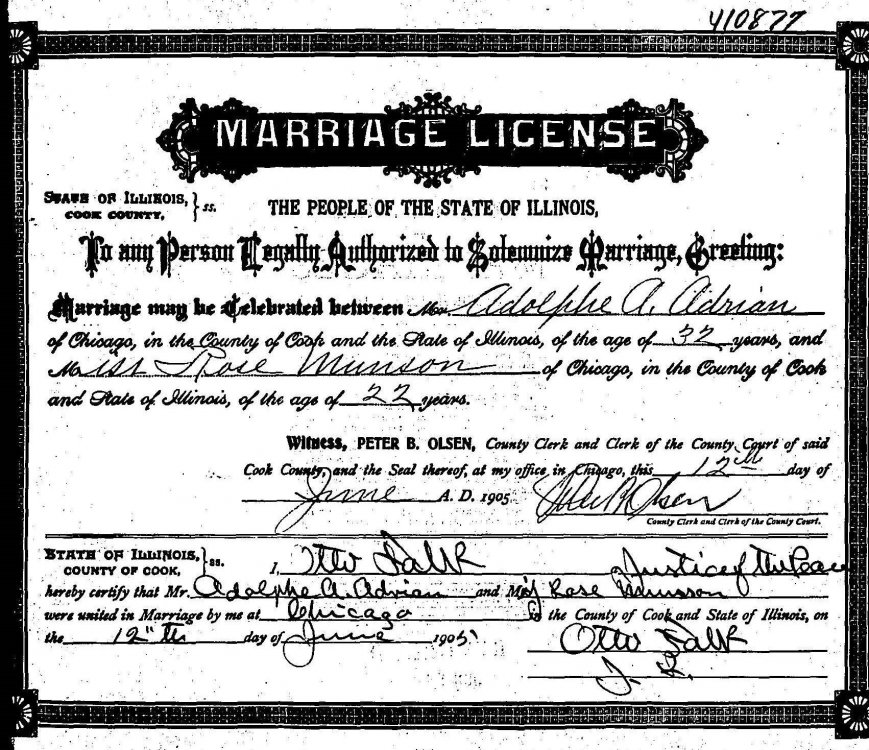 410877
MARRIAGE LICENSE
STATE OF ILLINOIS, } ss.
COOK COUNTY,
THE PEOPLE OF THE STATE OF ILLINOIS,
To any Person Legally Authorized to Solemnize Marriage, Greeting:
Marriage may be Celebrated between Mr Adolphe A. Adrian
of Chicago, in the County of Cook and the State of Illinois, of the age of 32 years, and
Miss Rose Munson of Chicago, in the County of Cook
and State of Illinois, of the age of 22 years.
Witness, PETER B. OLSEN, County Clerk and Clerk of the County Court of said
Cook County, and the Seal thereof, at my office in Chicago, this 12th day of
June A. D. 1905 Peter B. Olsen
County Clerk and Clerk of the County Court.
STATE OF ILLINOIS, } ss.
COUNTY OF COOK,
I, Otto Falk Justice of the Peace
hereby certify that Mr. Adolphe A. Adrian and Miss Rose Munsson
were united in Marriage by me at Chicago in the County of Cook and State of Illinois, on
the 12"th day of June 1905
Otto Falk
J. P.